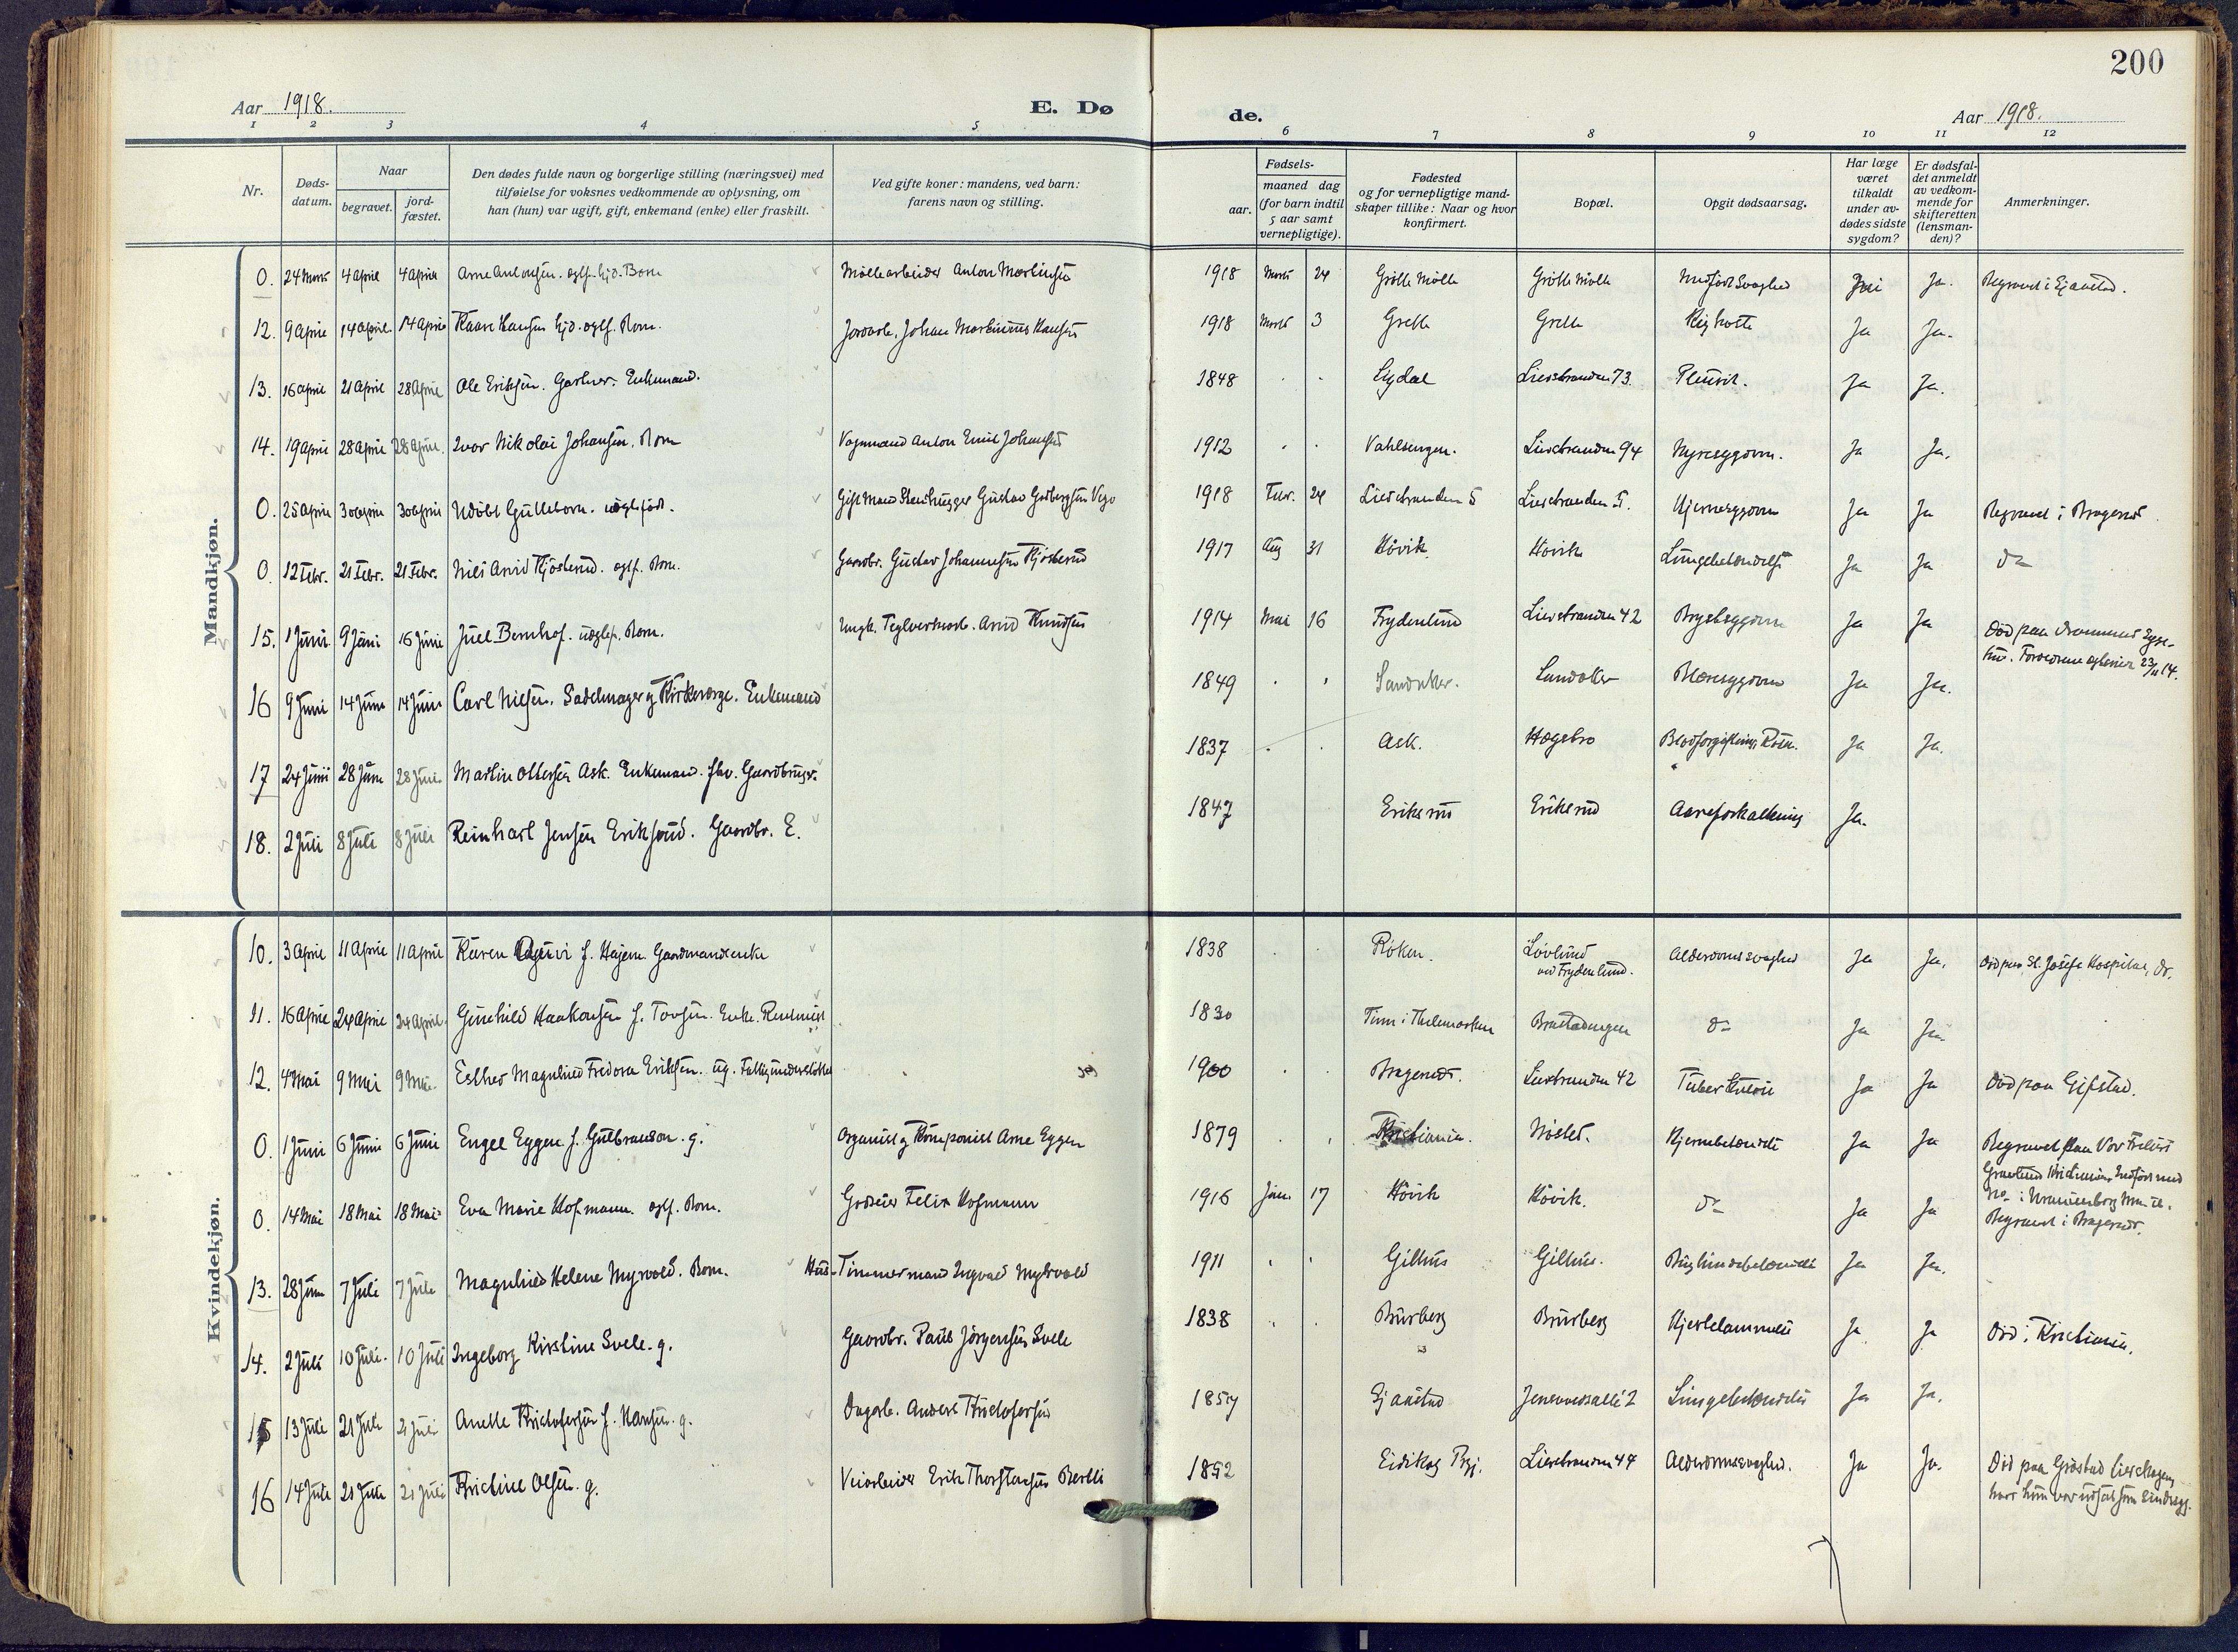 200
Aar 1918.
E. Dø
de.
Aar 1918.
1 2 3 4 5 6 7 8 9 10 11 12
Nr.
Døds-
datum.
Naar
begravet.
jord-
fæstet.
Den dødes fulde navn og borgerlige stilling (næringsvei) med
tilføielse for voksnes vedkommende av oplysning, om
han (hun) var ugift, gift, enkemand (enke) eller fraskilt.
Ved gifte koner: mandens, ved barn:
farens navn og stilling.
Fødsels-
aar.
maaned dag
(for barn indtil
5 aar samt
vernepligtige).
Fødested
og for vernepligtige mand-
skaper tillike: Naar og hvor
konfirmert.
Bopæl.
Opgit dødsaarsag.
Har læge
været
tilkaldt
under av-
dødes sidste
sygdom?
Er dødsfal-
det anmeldt
av vedkom-
mende for
skifteretten
(lensman-
den)?
Anmerkninger.
Mandkjøn.
0. 24 Marts 4 April 4 April Arne Antonsen. Barn Møllearbeider Anton Martinsen 1918 Marts 24 Grøtte Mølle Grøtte Mølle Medfødt Svaghed Nei Ja. Begravet i Gjaastad.
12. 9 April 14 April 14 April Kaare Hansen Barn. Jordarb. Johan Martinius Hansen 1918 Marts 3 Grette Grette Kighoste Ja Ja.
13. 16 April 21 April 28 April Ole Eriksen. Gartner. Enkemand. 1848 Sigdal Lierstranden 73 Pleurit. Ja Ja.
14. 19 April 28 April 28 April. Ivar Nikolai Johansen. Barn Vognmand Anton Emil Johansen 1912 Vahlsengen. Lierstranden 94 Nyresygdom. Ja Ja.
0. 25 April 30 April 30 April Udøbt Gutteborn. Gift Mand Stenhugger Gustav 1918 Febr. 24 Lierstranden 5 Lierstranden 5. Hjernesygdom Ja Ja Begravet i Bragernes
0. 12 Febr. 21 Febr. 21 Febr. Nils Arvid Kjøsterud. Barn. Gaardbr. Gustav Johannesen Kjøsterud 1917 Aug 31 Høvik Høvik Lungebetændelse Ja Ja do
15. 1 Juni 9 Juni 16 Juni Juel Bernhof. Barn. Ungk. Teglverksarb. Arvid Knudsen 1914 Mai 16 Frydenlund Lierstranden 42 Brystsygdom Ja Ja Død paa Drammens Syge-
hus. 23/11 14.
16 9 Juni 14 Juni 14 Juni Carl Nilsen. Sadelmager og Kirkeverge. Enkemand 1849 Landaker. Landaker Blæresygdom Ja Ja.
17 24 Juni 28 Juni 28 Juni Martin Ottersen Ask. Enkemand. fhv. Gaardbruger. 1837 Ask. Hægsbro Blodforgiftning, Ja Ja.
18. 2 Juli 8 Juli 8 Juli Reinhart Jensen Eriksrud. Gaardbr. E. 1847 Eriksrud Eriksrud Aareforkalkning Ja.
Kvindekjøn.
10. 3 April 11 April 11 April Karen f. Hajem Gaardmandsenke 1838 Røken. Løvlund
ved Frydenlund. Alderdomssvaghed Ja Ja. Død paa St. Josefs Hospital, Dr.
11. 16 April 24 April 24 April. Gunhild Haakonsen f. Tovsen. Enke. 1830 Tinn i Thelemarken do Ja Ja
12. 4 Mai 9 Mai 9 Mai Esther Magnhild Fredora Eriksen. ug. Fattigunderstøttet 1900 Bragernes. Lierstranden 42 Tuberkulose Ja Ja Død paa Gifstad.
0. 1 Juni 6 Juni 6 Juni Engel Eggen f. Gulbranson. g. Organist og Komponist Arne Eggen 1879 Kristiania. Nøstet. Hjernebetændelse Ja Ja Begravet paa Vor Frelsers
Gravlund Kristiania. Indført med
No - i Uranienborg
0. 14 Mai 18 Mai 18 Mai Eva Marie Hofmann. Barn. Godseier Felix Hofmann 1916 Jan. 17 Høvik Høvik. do Ja Ja Begravet i Bragernes.
13. 28 Juni 7 Juli 7 Juli Magnhild Helene Myrvold. Barn. Hus-Tømmermand Ingvald Myhrvold 1911 Gilhus Gilhus. Bughindebetændelse Ja Ja.
14. 2 Juli 10 Juli. 10 Juli Ingeborg Kirstine Svele. g. Gaardbr. Paul Jørgensen Svele 1838 Burberg Burberg Hjertelammelse Ja Ja Død i Kristiania.
15 13 Juli 21 Juli 21 Juli Anette Kristofersen f. Hansen. g. Dagarb. Anders Kristofersen 1857 Gjaastad Lungebetændelse Ja Ja.
16 14 Juli 21 Juli 21 Juli Kristine Olsen. g. Veiarbeider Erik Thorstensen Bertli 1852 Eidskog Prgj. Lierstranden 44 Alderdomssvaghed. Ja Ja. Død paa Grøstad Lierskogen,
hvor hun var udsat som Sindssyg.